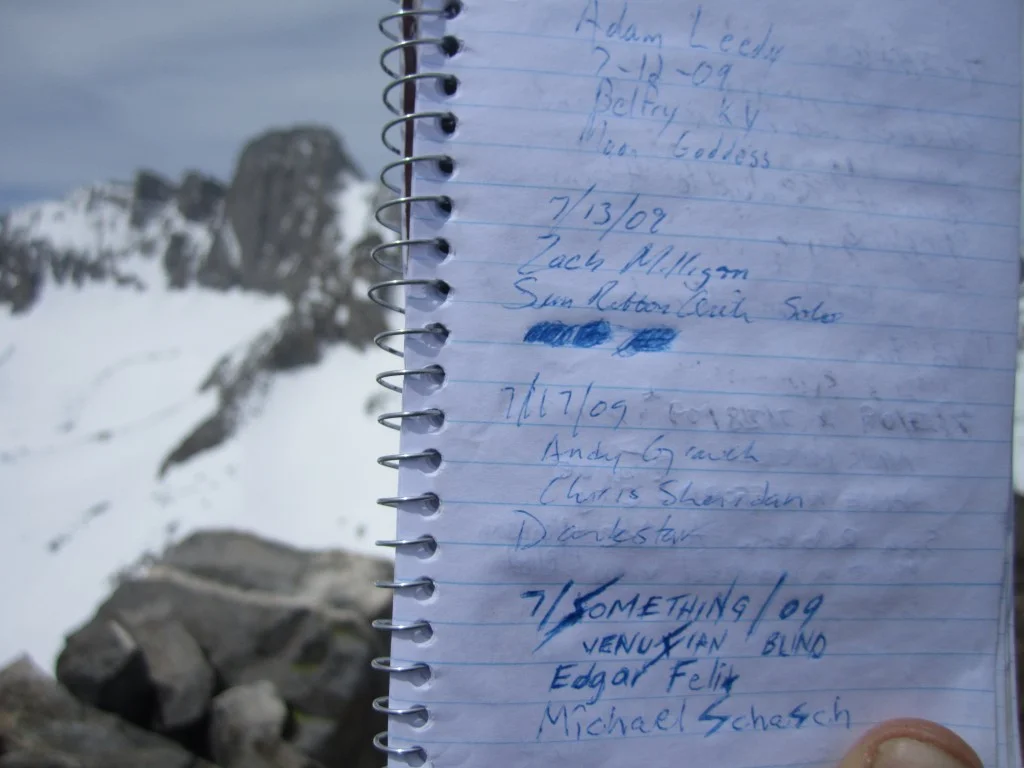 Adam Leedy
7-12-09
Belfry KY
Moon Goddess
7/13/09
Zach Milligan
Sun Ribbon Solo
7/17/09
Andy
Chris Sheridan
Darkstar
7/SOMETHING/09
VENUSIAN BLIND
Edgar Felix
Michael Schasch